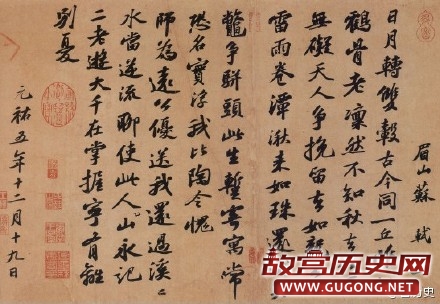 眉山蘇軾
日月轉雙轂古今同一丘
鶴骨老凜然不知秋去
無礙天人爭挽留去如龍
雷雨卷潭湫來如珠還
鼈爭駢頭此生暫寄寓常
恐名實浮我比陶令愧
師為遠公優送我還過溪〻
水當逆流聊使此人山永記
二老遊大千在掌握寧有離
別憂
元祐五年十二月十九日
故宫历史网
www.GUGONG.net